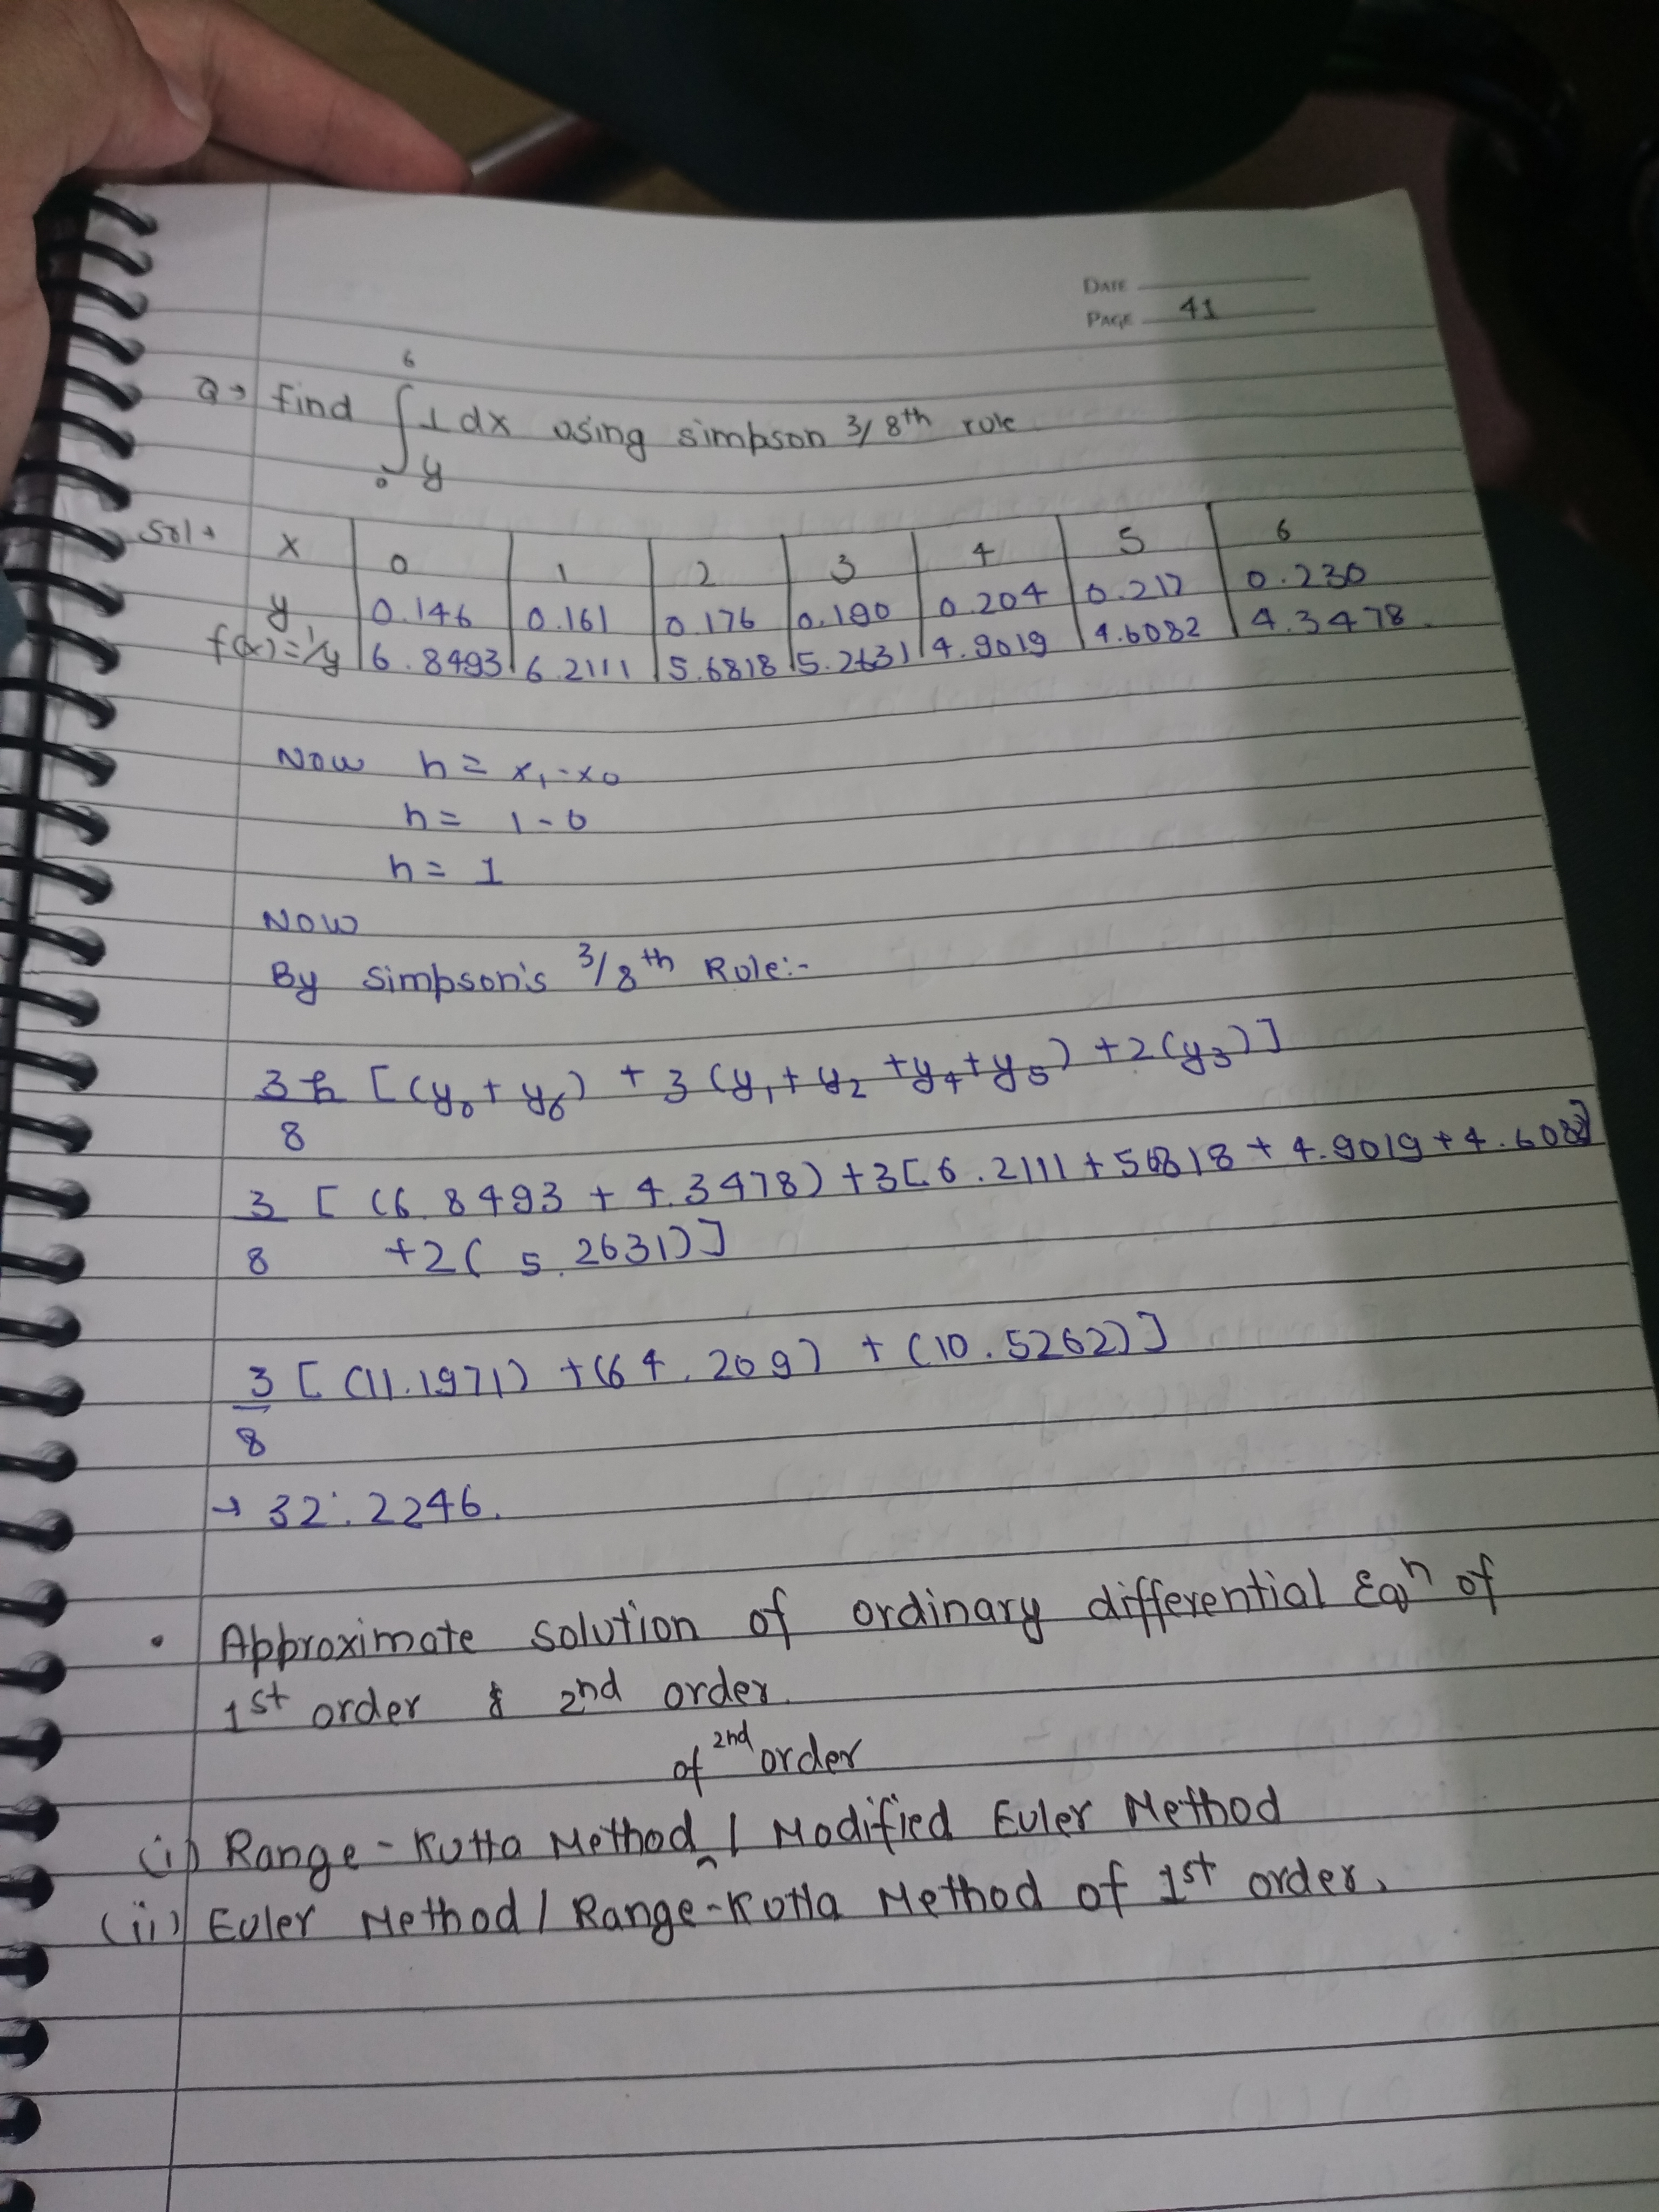 DATE
PAGE 41
Q→ find ∫₀⁶ 1/y dx using simpson 3/8th rule
Sol→ x 0 1 2 3 4 5 6
y 0.146 0.161 0.176 0.190 0.204 0.217 0.230
f(x)=1/y 6.8493 6.2111 5.6818 5.2631 4.9019 4.6082 4.3478
Now h = x₁-x₀
h = 1-0
h = 1
Now
By Simpson's 3/8th Rule:-
3h/8 [(y₀+y₆) + 3(y₁+y₂+y₄+y₅) +2(y₃)]
3/8 [(6.8493 + 4.3478) +3[6.2111+5.6818+4.9019+4.6082]
+2(5.2631)]
3/8 [(11.1971) +(64.209) + (10.5262)]
→ 32.2246.
• Approximate solution of ordinary differential Eqⁿ of
1st order & 2nd order.
of 2nd order
(i) Range-Kutta Method ^ / Modified Euler Method
(ii) Euler Method / Range-Kutta Method of 1st order.